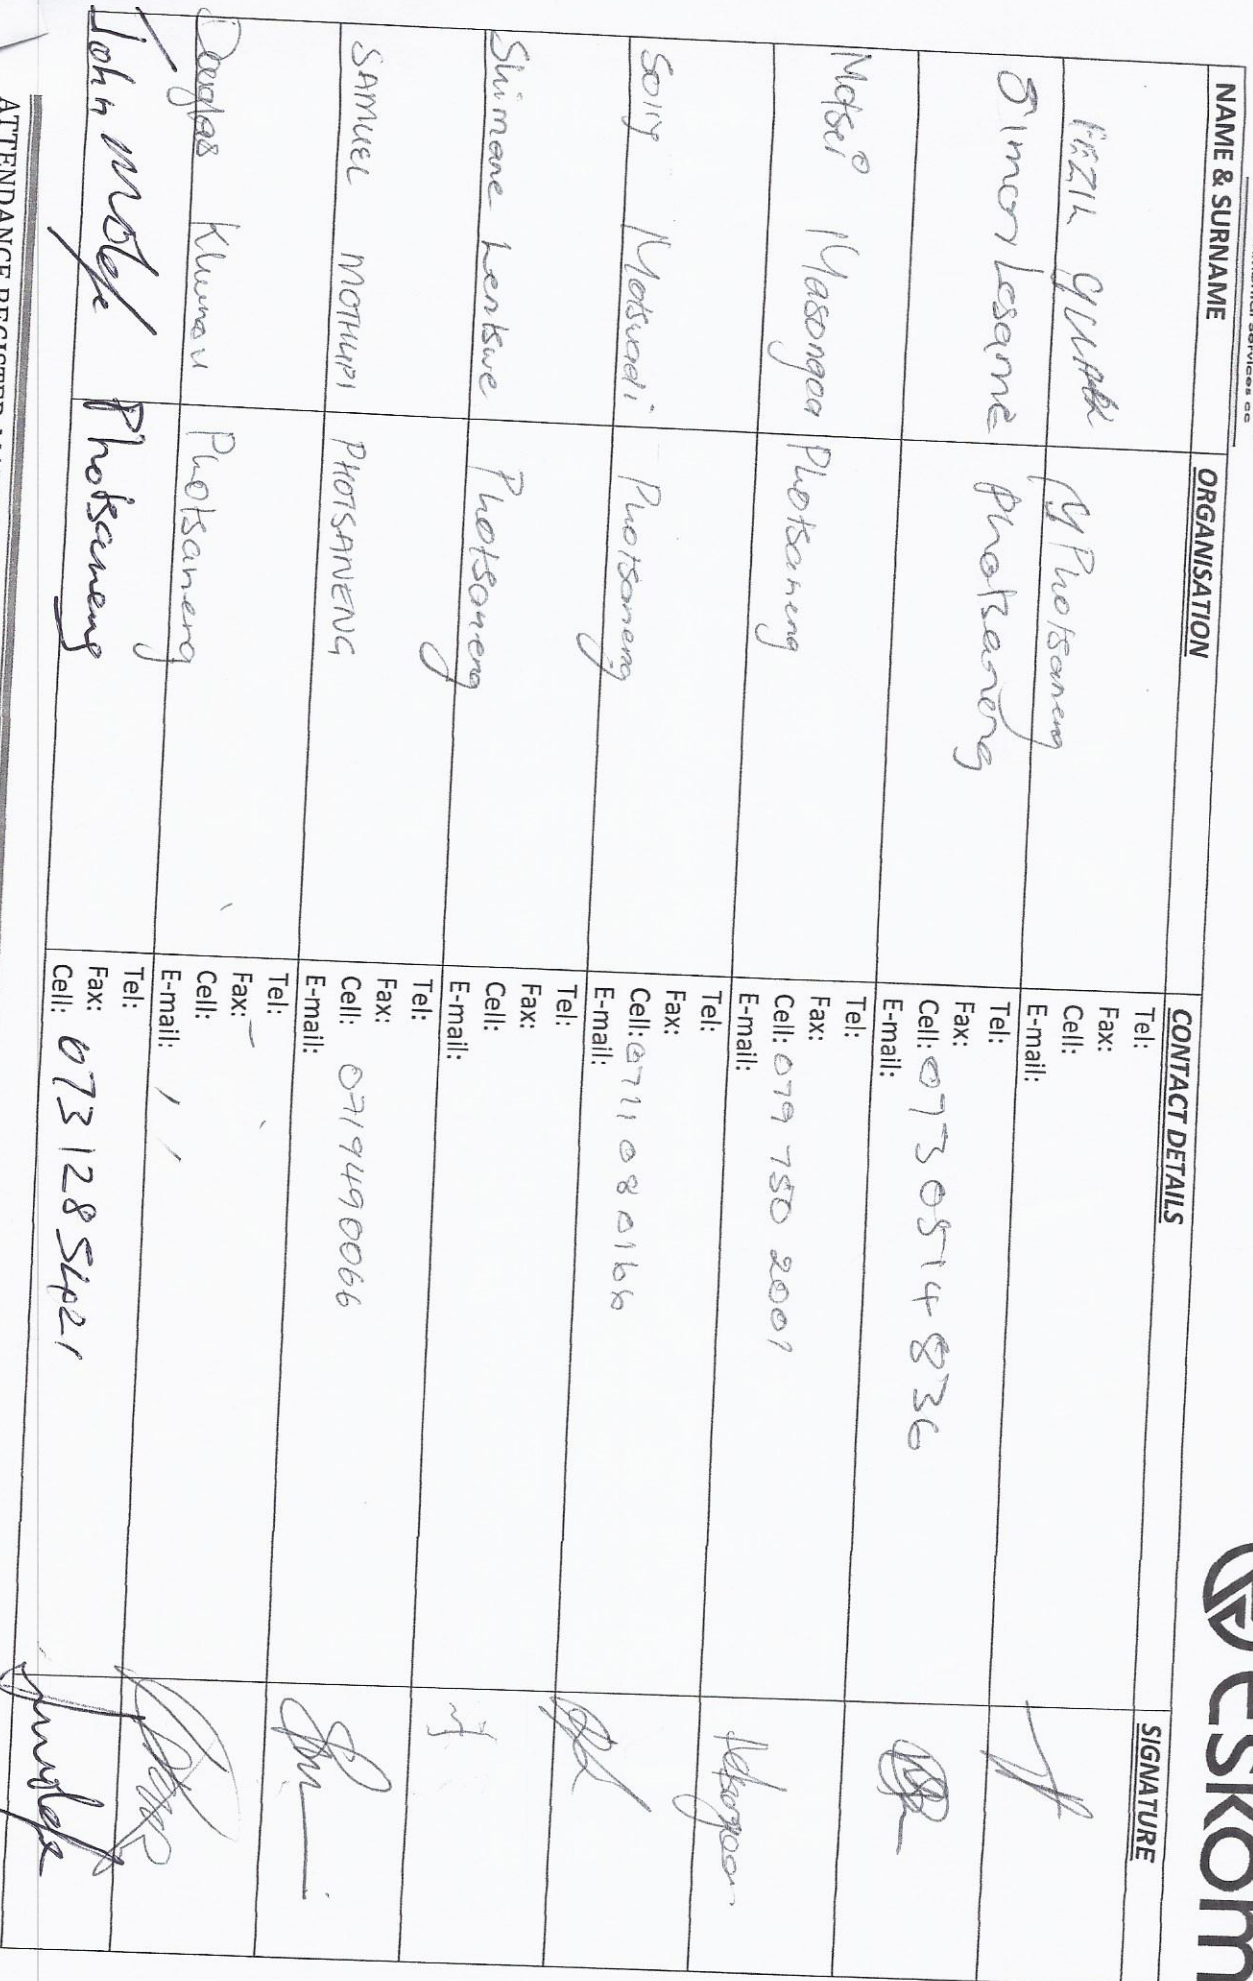 Eskom
NAME & SURNAME ORGANISATION CONTACT DETAILS SIGNATURE
Photsaneng
Tel:
Fax:
Cell:
E-mail:
Simon Lesame Photsaneng
Tel:
Fax:
Cell: 0730514836
E-mail:
Motsei Masongoa Photsaneng
Tel:
Fax:
Cell: 079 750 2001
E-mail:
Solly Motsuadi Photsaneng
Tel:
Fax:
Cell:
E-mail:
Shimane Lentswe Photsaneng
Tel:
Fax:
Cell:
E-mail:
SAMUEL MOTHUPI PHOTSANENG
Tel:
Fax:
Cell: 0719490066
E-mail:
Douglas Khunou Photsaneng
Tel:
Fax:
Cell:
E-mail:
John Molefe Photsaneng
Tel:
Fax:
Cell: 073 128 5421
ATTENDANCE REGISTER